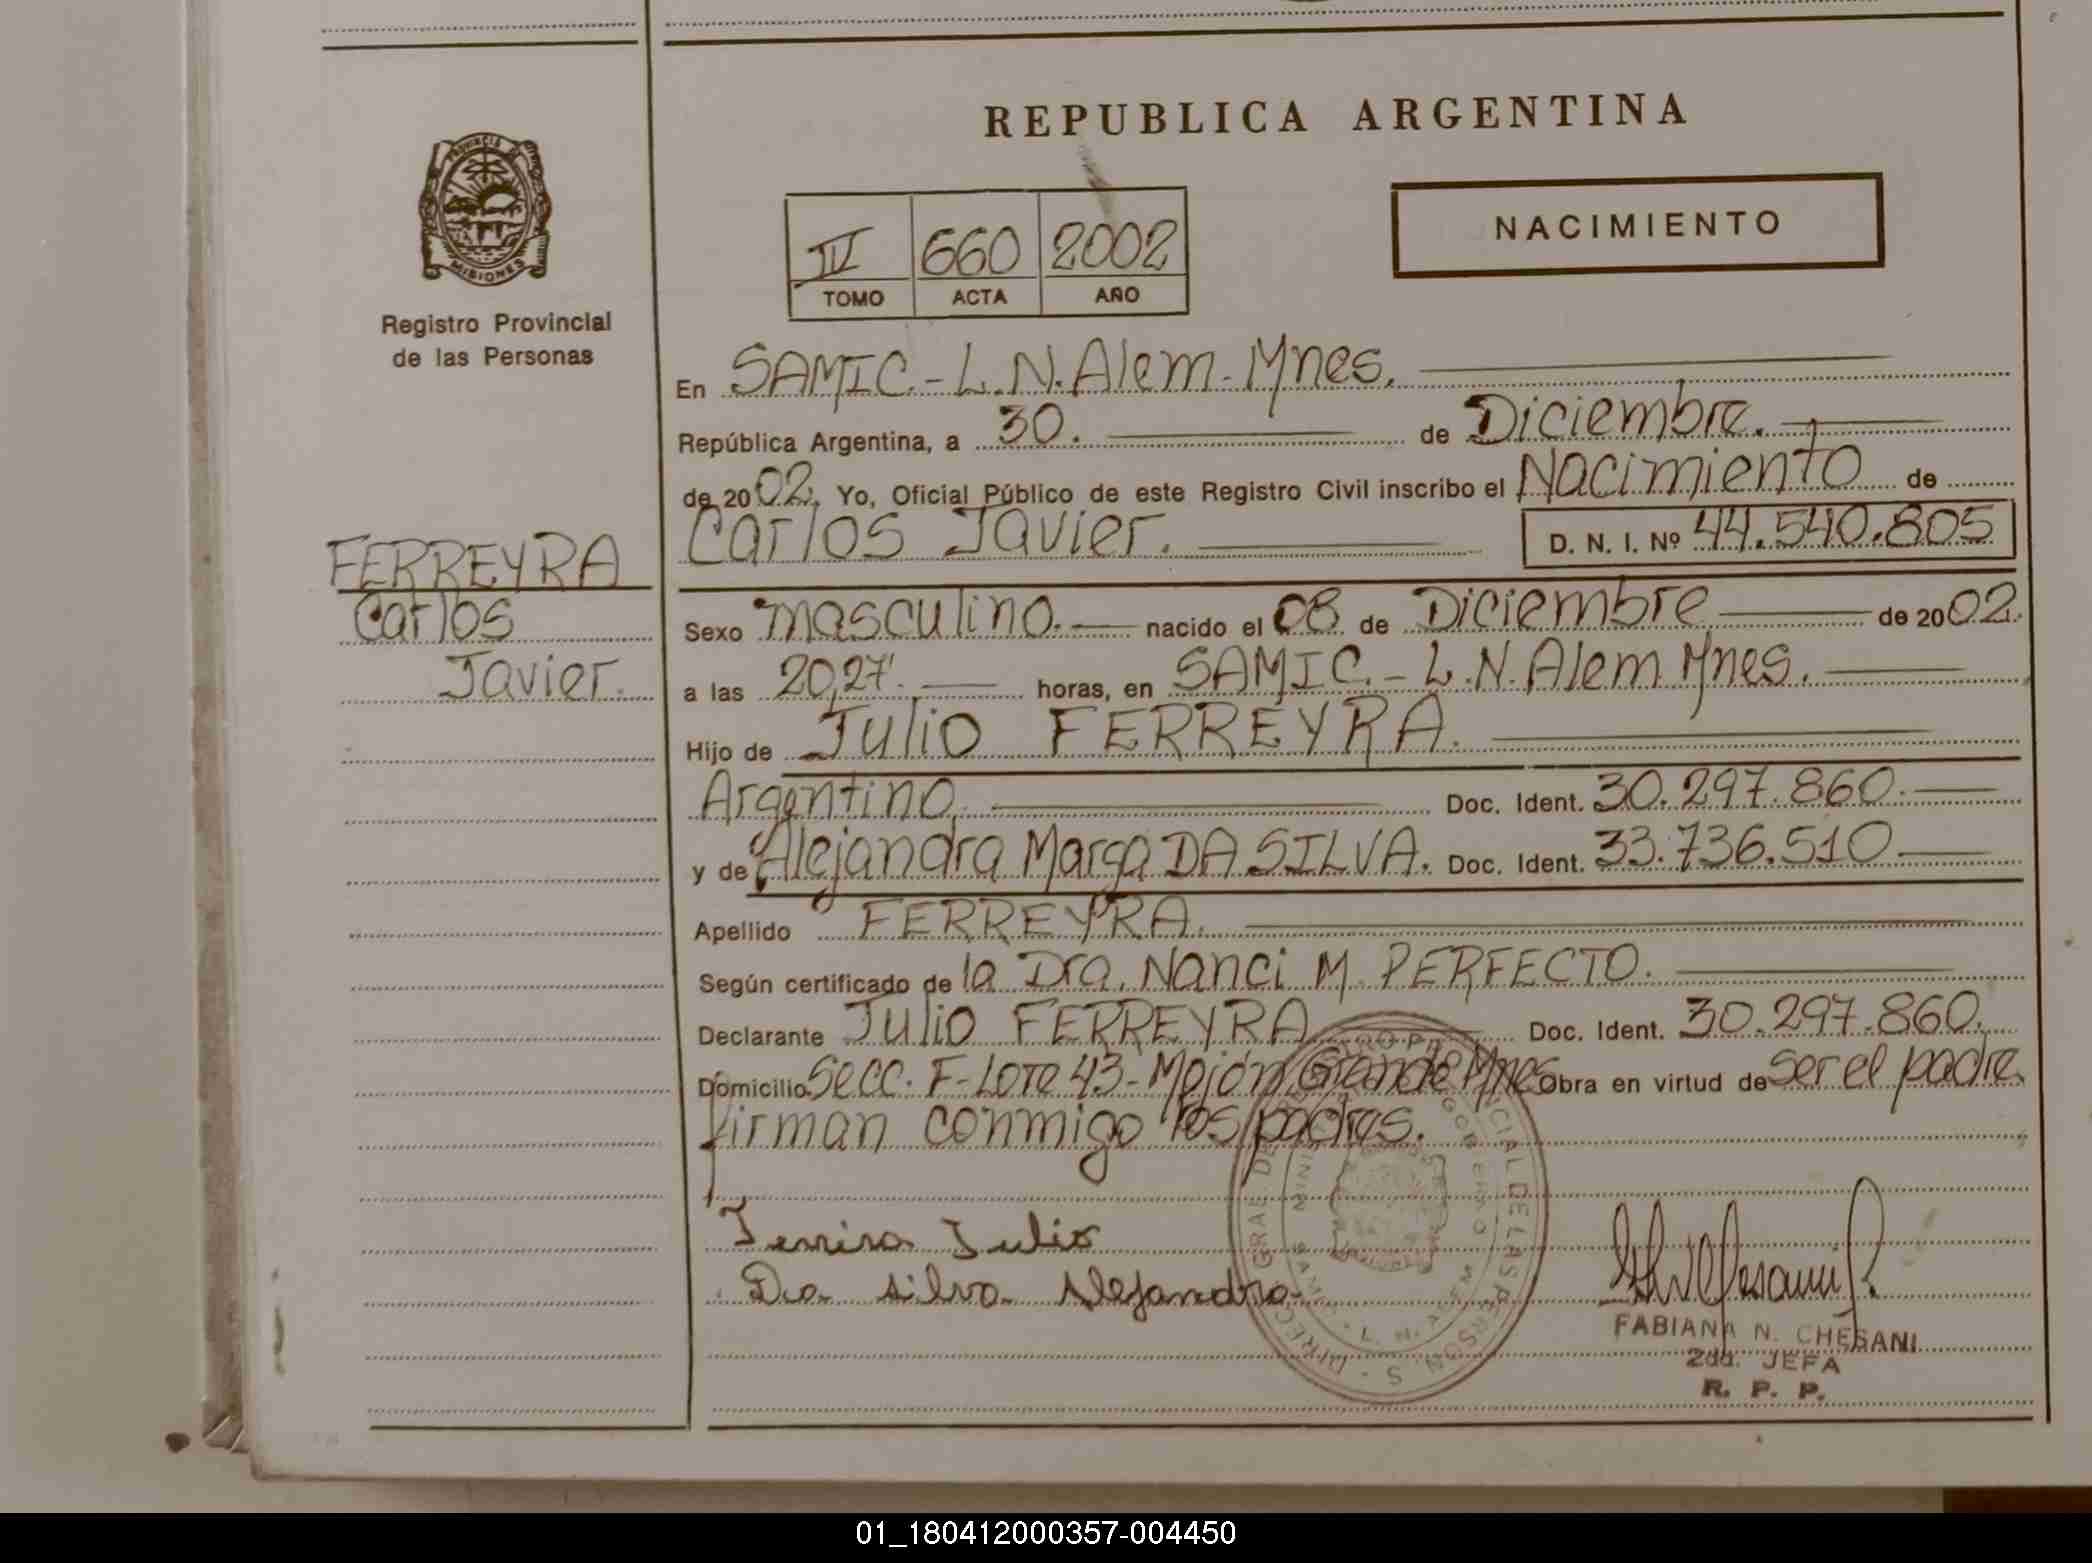 REPUBLICA ARGENTINA
PROVINCIA DE MISIONES
Registro Provincial
de las Personas
IV 660 2002
TOMO ACTA AÑO
NACIMIENTO
En SAMIC - L.N. Alem - Mnes.
República Argentina, a 30. de Diciembre.
de 2002. Yo, Oficial Público de este Registro Civil inscribo el Nacimiento de
Carlos Javier. D. N. I. Nº 44.540.805
FERREYRA
Carlos
Javier.
Sexo masculino. nacido el 08 de Diciembre de 2002.
a las 20,27'. horas, en SAMIC - L.N. Alem Mnes.
Hijo de Julio FERREYRA.
Argentino. Doc. Ident. 30.297.860.
y de Alejandra Marga DA SILVA. Doc. Ident. 33.736.510
Apellido FERREYRA.
Según certificado de la Dra. Nanci M. PERFECTO.
Declarante Julio FERREYRA Doc. Ident. 30.297.860.
Domicilio Secc. F - Lote 43 - Mojón Grande Mnes Obra en virtud de ser el padre
firman conmigo los padres.
Ferrira Julio
Da silva Alejandra
FABIANA N. CHESANI
2da. JEFA
R. P. P.
01_180412000357-004450